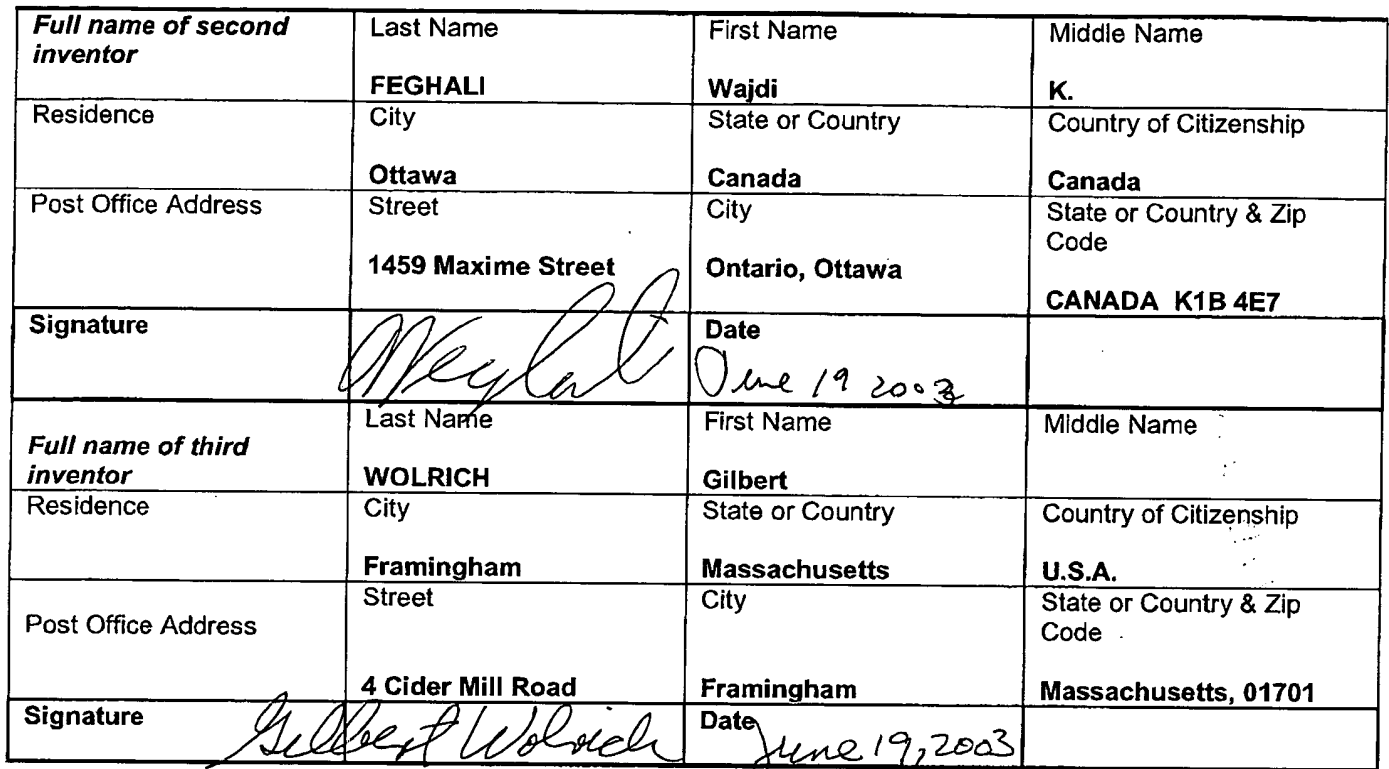 Full name of second
inventor
Last Name
FEGHALI
First Name
Wajdi
Middle Name
K.
Residence
City
Ottawa
State or Country
Canada
Country of Citizenship
Canada
Post Office Address
Street
1459 Maxime Street
City
Ontario, Ottawa
State or Country & Zip
Code
CANADA K1B 4E7
Signature
Date
June 19 2003
Full name of third
inventor
Last Name
WOLRICH
First Name
Gilbert
Middle Name
Residence
City
Framingham
State or Country
Massachusetts
Country of Citizenship
U.S.A.
Post Office Address
Street
4 Cider Mill Road
City
Framingham
State or Country & Zip
Code
Massachusetts, 01701
Signature
Gilbert Wolrich
Date
June 19, 2003